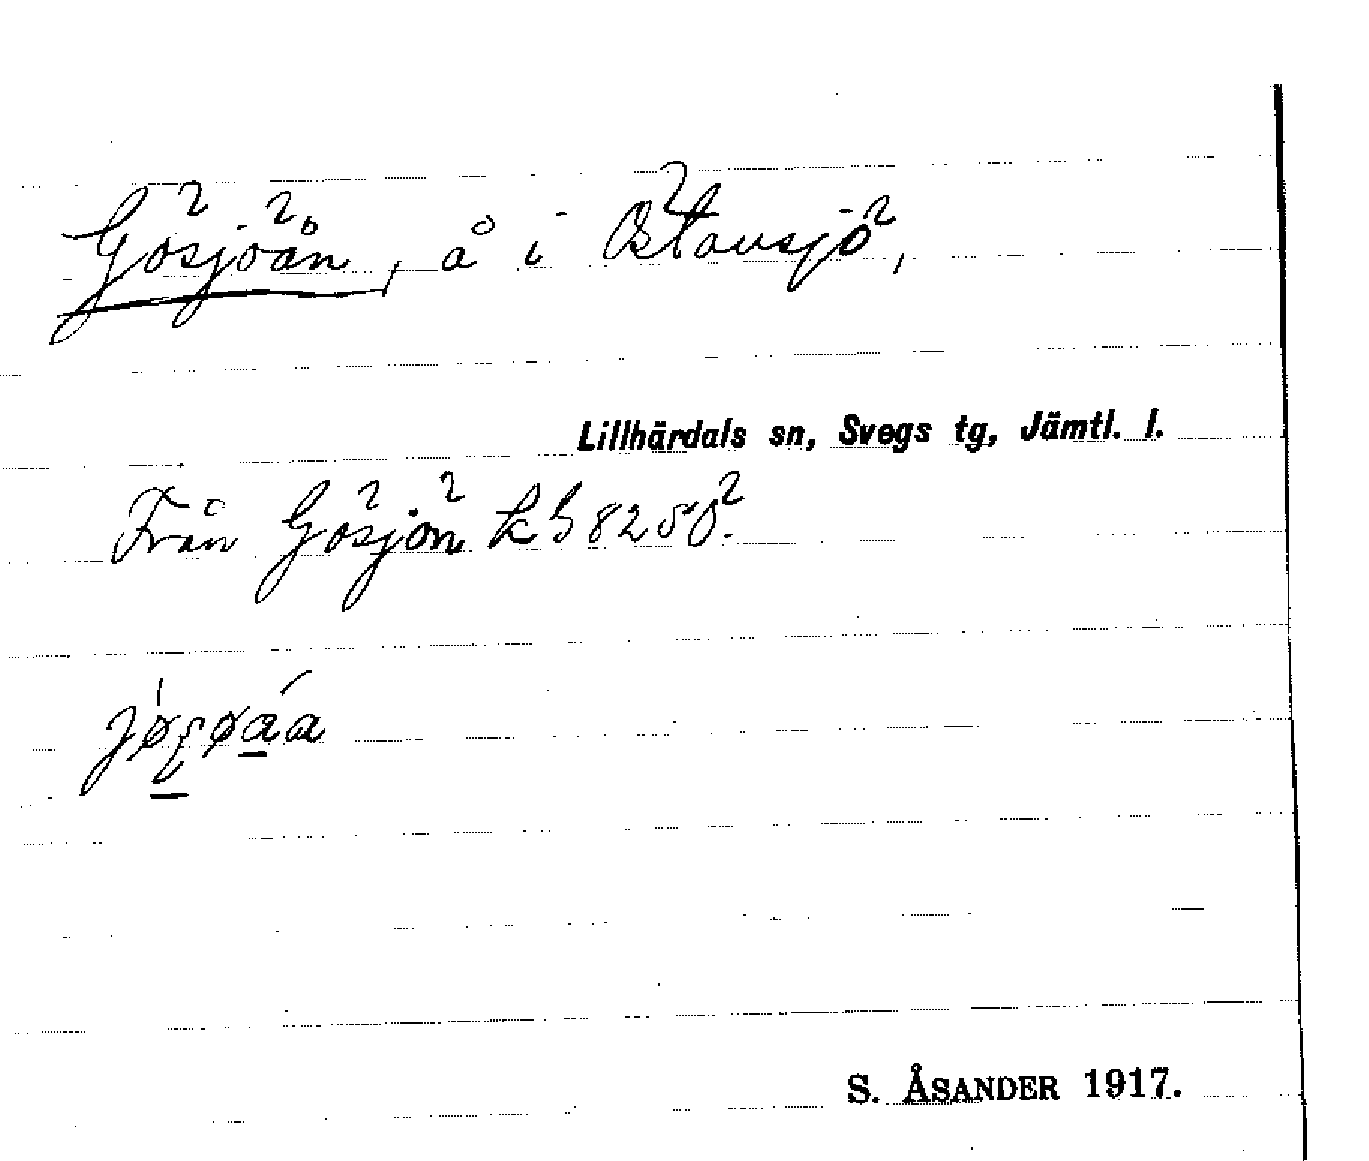 Gösjöån, å i Östansjö,
Lillhärdals sn, Svegs tg, Jämtl. l.
Från Gösjön kb 8250.
S. ÅSANDER 1917.